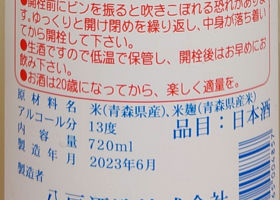 ●開栓前にビンを振ると吹きこぼれる恐れがありま
す。ゆっくりと開け閉めを繰り返し、中身が落ち着い
てから開栓して下さい。
●生酒ですので低温で保管し、開栓後はお早めに
お飲み下さい。
●お酒は20歳になってから、楽しく適量を。
原材料名 米(青森県産)、米麹(青森県産米)
アルコール分 13度
品目:日本酒
内容量 720ml
製造年月 2023年6月
製造者
八戸酒造株式会社